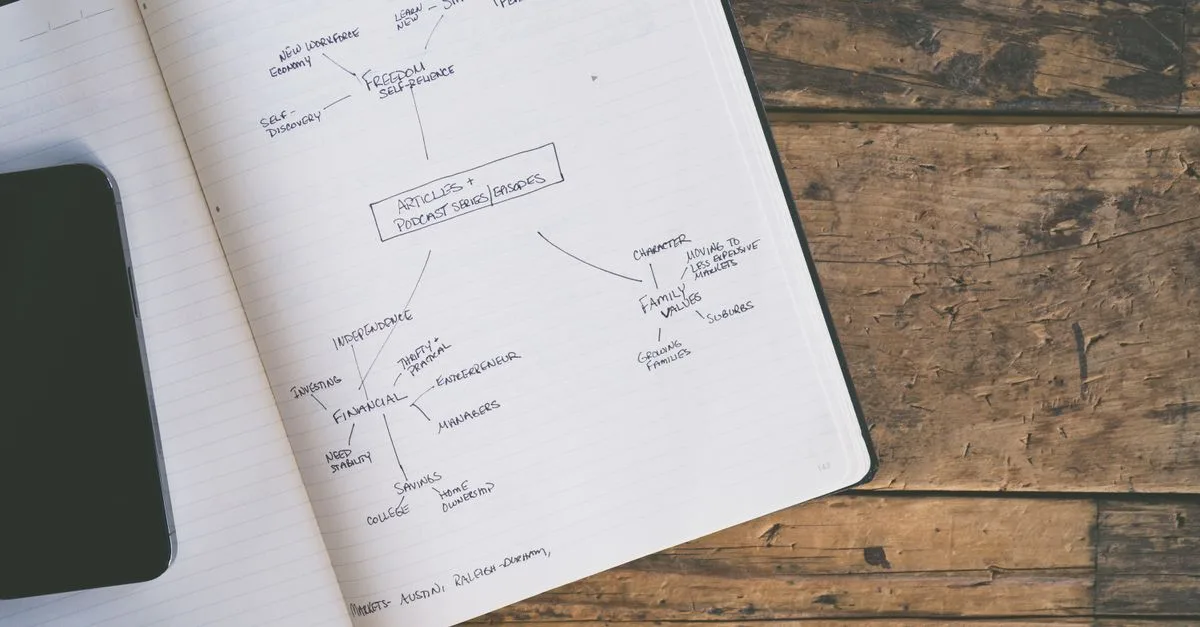 LEARN
NEW
NEW WORKFORCE
ECONOMY
FREEDOM
SELF-RELIENCE
SELF-
DISCOVERY
ARTICLES +
PODCAST SERIES/EPISODES
CHARACTER
MOVING TO
LESS EXPENSIVE
MARKETS
FAMILY
VALUES
SUBURBS
GROWING
FAMILIES
INDEPENDENCE
THRIFTY +
PRATICAL
INVESTING
ENTREPRENEUR
FINANCIAL
MANAGERS
NEED
STABILITY
SAVINGS
HOME
OWNERSHIP
COLLEGE
MARKETS- AUSTIN, RALEIGH-DURHAM,